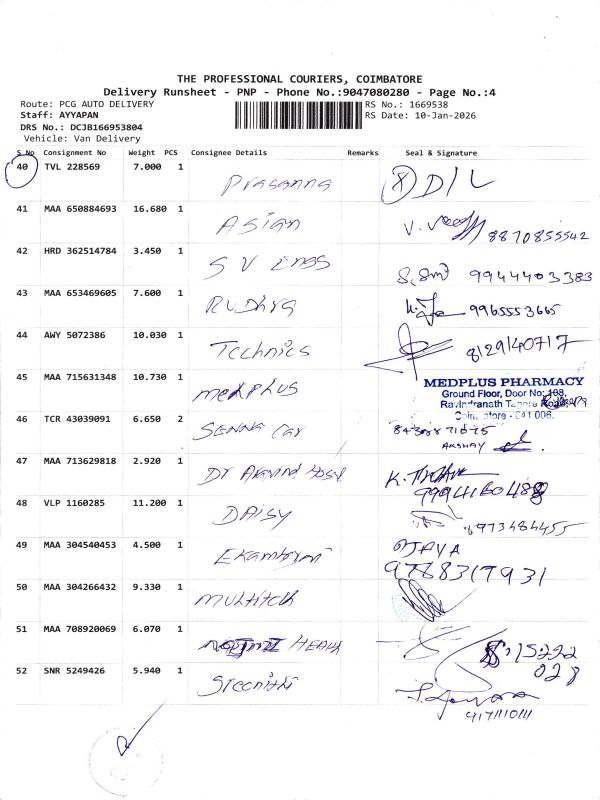 THE PROFESSIONAL COURIERS, COIMBATORE
Delivery Runsheet - PNP - Phone No.:9047080280 - Page No.:4
Route: PCG AUTO DELIVERY RS No.: 1669538
Staff: AYYAPAN RS Date: 10-Jan-2026
DRS No.: DCJB166953804
Vehicle: Van Delivery
S No Consignment No Weight PCS Consignee Details Remarks Seal & Signature
40 TVL 228569 7.000 1 Prasanna D/L
41 MAA 650884693 16.680 1 Asian 8870855542
42 HRD 362514784 3.450 1 S V Engs 9944403383
43 MAA 653469605 7.600 1 Rudhra 9965553665
44 AWY 5072386 10.030 1 Technics 8129140717
45 MAA 715631348 10.730 1 medplus MEDPLUS PHARMACY
Ground Floor, Door No: 108,
Ravindranath Tagore Road,
Coimbatore - 641 006.
46 TCR 43039091 6.650 2 Senna Car
AKSHAY
47 MAA 713629818 2.920 1 Dr Aravind Hosp
48 VLP 1160285 11.200 1 DAISY 8973484455
49 MAA 304540453 4.500 1 VIJAYA
9788317931
50 MAA 304266432 9.330 1
51 MAA 708920069 6.070 1 HEALTH
52 SNR 5249426 5.940 1 Sreenithi